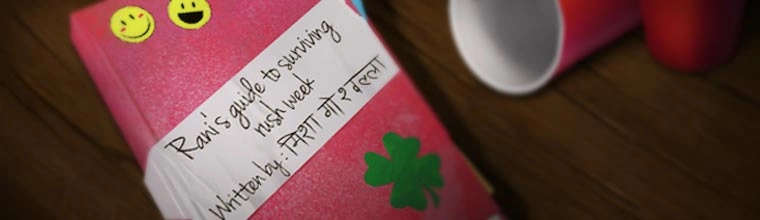 Rani's guide to surviving
rush week
Written by: निशा